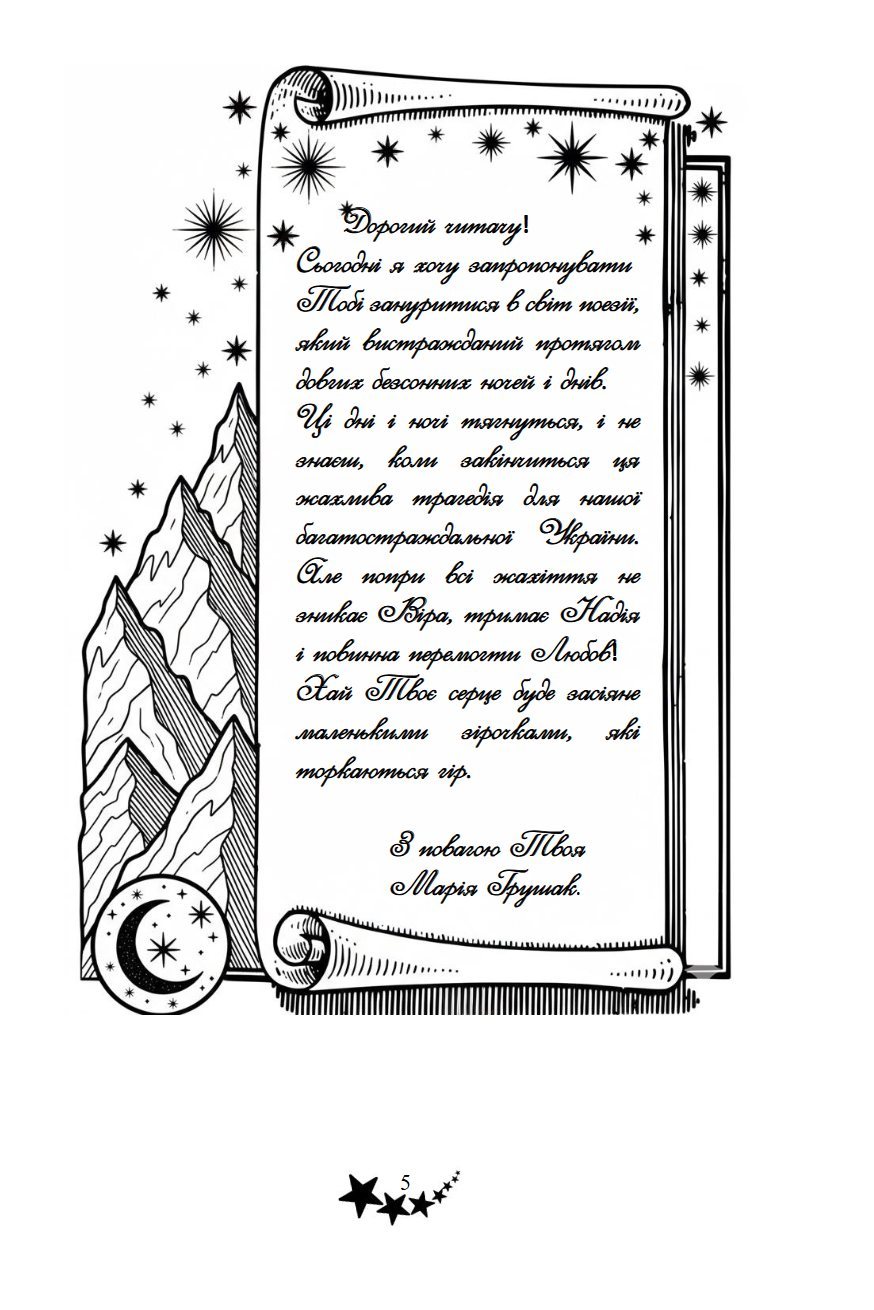 Дорогий читачу!
Сьогодні я хочу запропонувати
Тобі зануритися в світ поезії,
який вистражданий протягом
довгих безсонних ночей і днів.
Ці дні і ночі тягнуться, і не
знаєш, коли закінчиться ця
жахлива трагедія для нашої
багатостраждальної України.
Але попри всі жахіття не
зникає Віра, тримає Надія
і повинна перемогти Любов!
Хай Твоє серце буде засіяне
маленькими зірочками, які
торкаються гір.
З повагою Твоя
Марія Грушак.
5